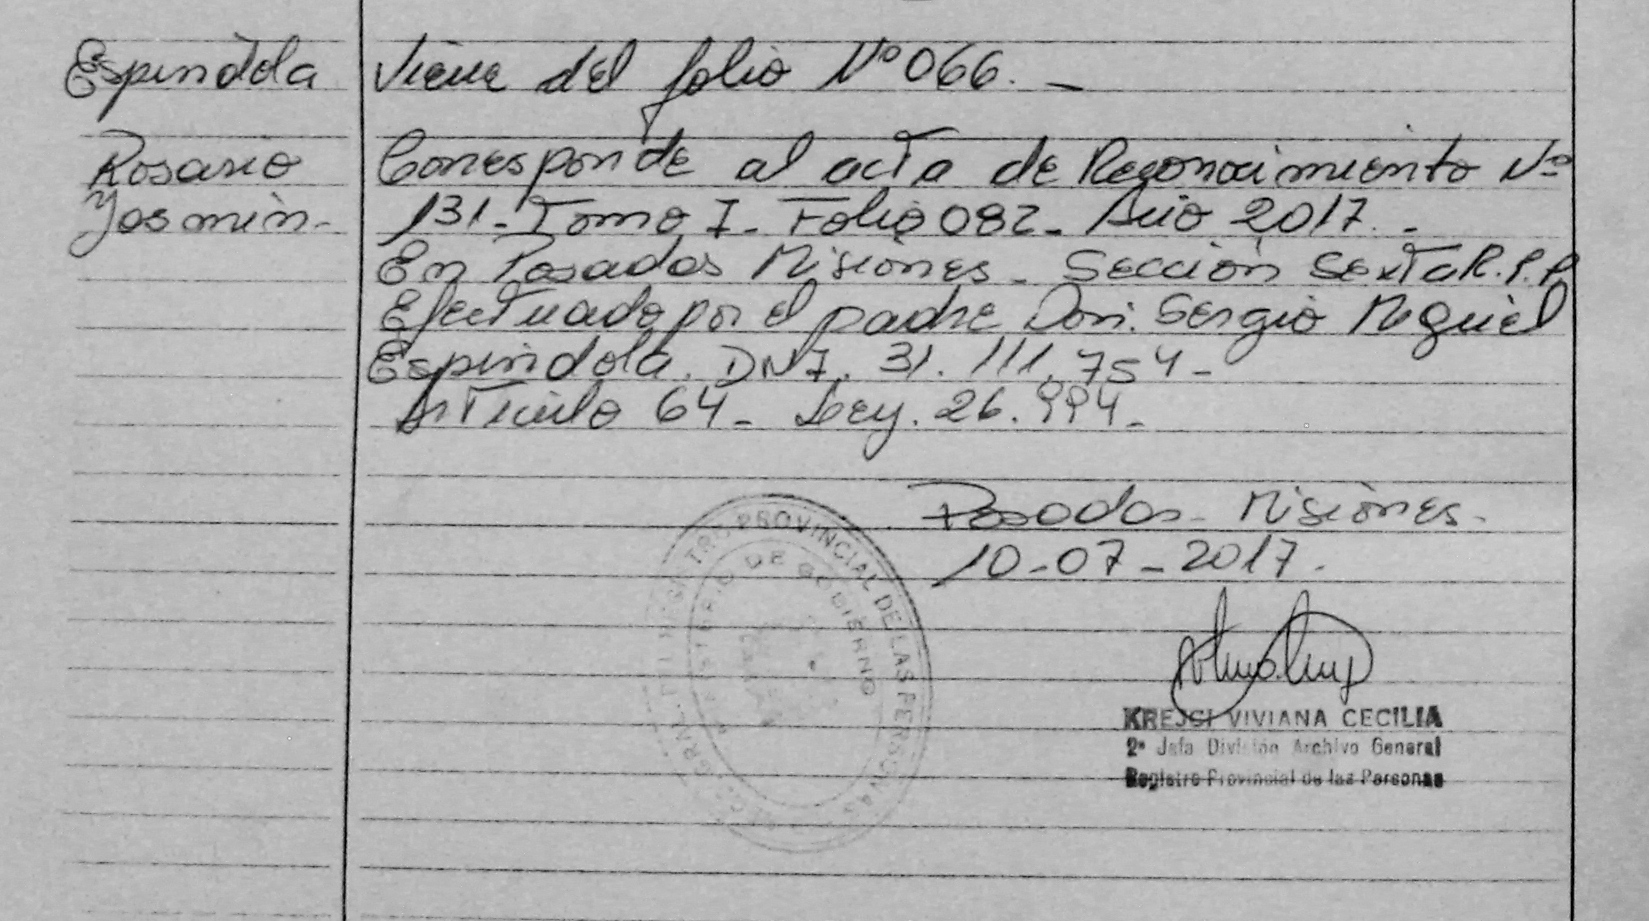 Espindola
Viene del folio Nº 066. -
Rosario
Yasmin -
Corresponde al acta de Reconocimiento Nº
131 - Tomo I - Folio 082 - Año 2017. -
En Posadas Misiones - Sección Sexta R.P.P
Efectuado por el padre Don. Sergio Miguel
Espindola. DNI. 31.111.754 -
Articulo 64 - Ley. 26.994 -
Posadas - Misiones -
10 - 07 - 2017.
PROVINCIAL DE LAS PERSONAS
DE GOBIERNO
KREJCI VIVIANA CECILIA
2ª Jefa División Archivo General
Registro Provincial de las Personas